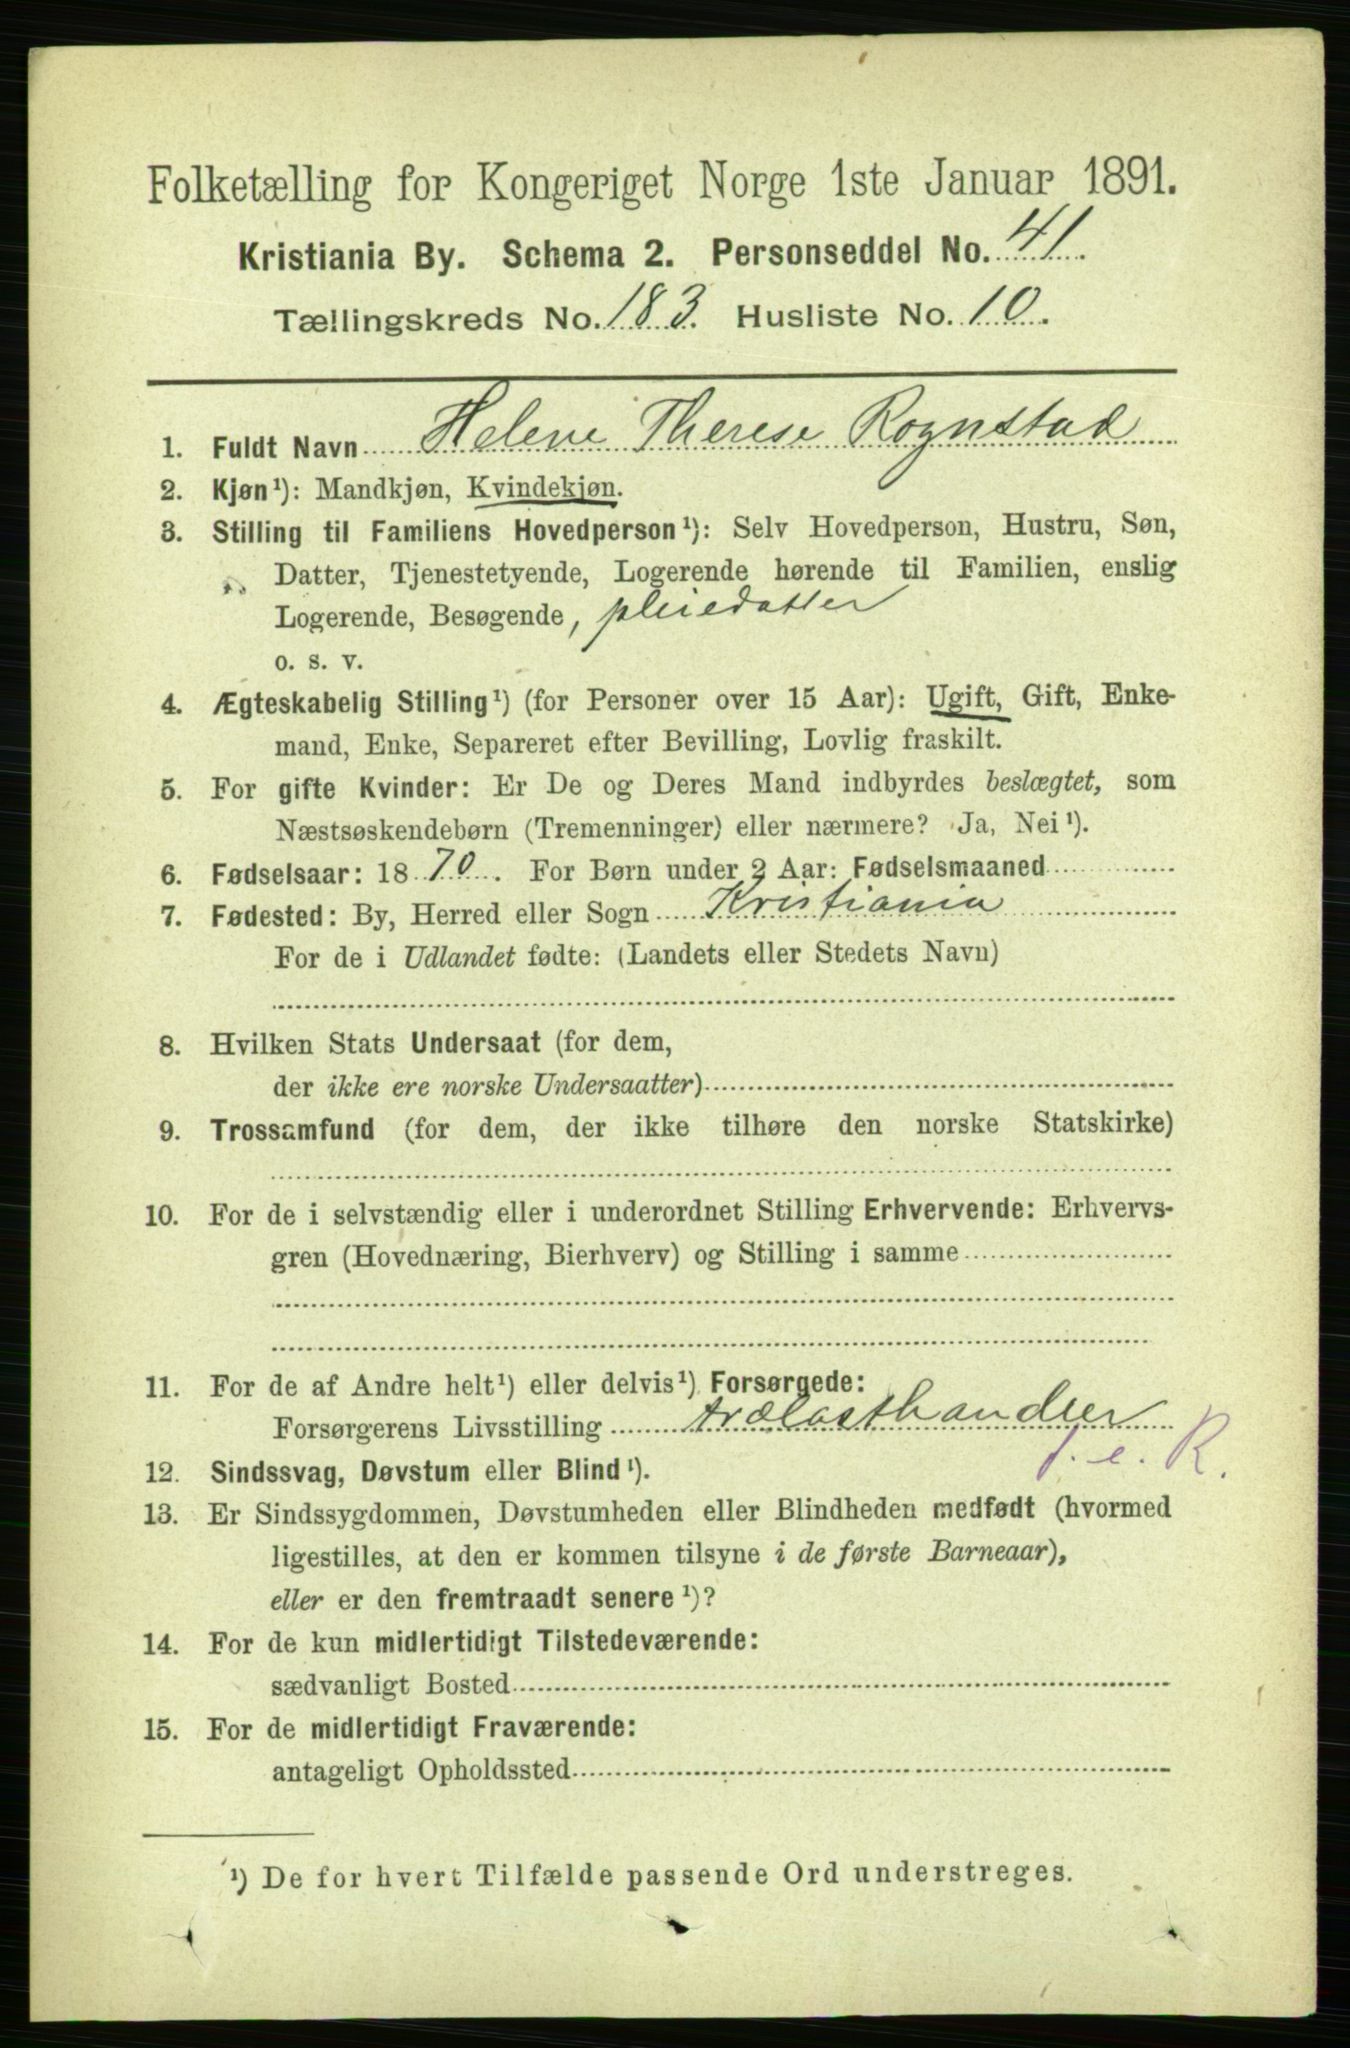 Folketælling for Kongeriget Norge 1ste Januar 1891.
Kristiania By. Schema 2. Personseddel No. 41.
Tællingskreds No. 183. Husliste No. 10.
1. Fuldt Navn Helene Therese Rognstad
2. Kjøn¹): Mandkjøn, Kvindekjøn.
3. Stilling til Familiens Hovedperson¹): Selv Hovedperson, Hustru, Søn,
Datter, Tjenestetyende, Logerende hørende til Familien, enslig
Logerende, Besøgende, pleiedatter
o. s. v.
4. Ægteskabelig Stilling¹) (for Personer over 15 Aar): Ugift, Gift, Enke-
mand, Enke, Separeret efter Bevilling, Lovlig fraskilt.
5. For gifte Kvinder: Er De og Deres Mand indbyrdes beslægtet, som
Næstsøskendebørn (Tremenninger) eller nærmere? Ja, Nei¹).
6. Fødselsaar: 1870. For Børn under 2 Aar: Fødselsmaaned
7. Fødested: By, Herred eller Sogn Kristiania
For de i Udlandet fødte: (Landets eller Stedets Navn)
8. Hvilken Stats Undersaat (for dem,
der ikke ere norske Undersaatter)
9. Trossamfund (for dem, der ikke tilhøre den norske Statskirke)
10. For de i selvstændig eller i underordnet Stilling Erhvervende: Erhvervs-
gren (Hovednæring, Bierhverv) og Stilling i samme
11. For de af Andre helt¹) eller delvis¹) Forsørgede:
Forsørgerens Livsstilling trælasthandler
f. e. R.
12. Sindssvag, Døvstum eller Blind¹).
13. Er Sindssygdommen, Døvstumheden eller Blindheden medfødt (hvormed
ligestilles, at den er kommen tilsyne i de første Barneaar),
eller er den fremtraadt senere¹)?
14. For de kun midlertidigt Tilstedeværende:
sædvanligt Bosted
15. For de midlertidigt Fraværende:
antageligt Opholdssted
¹) De for hvert Tilfælde passende Ord understreges.